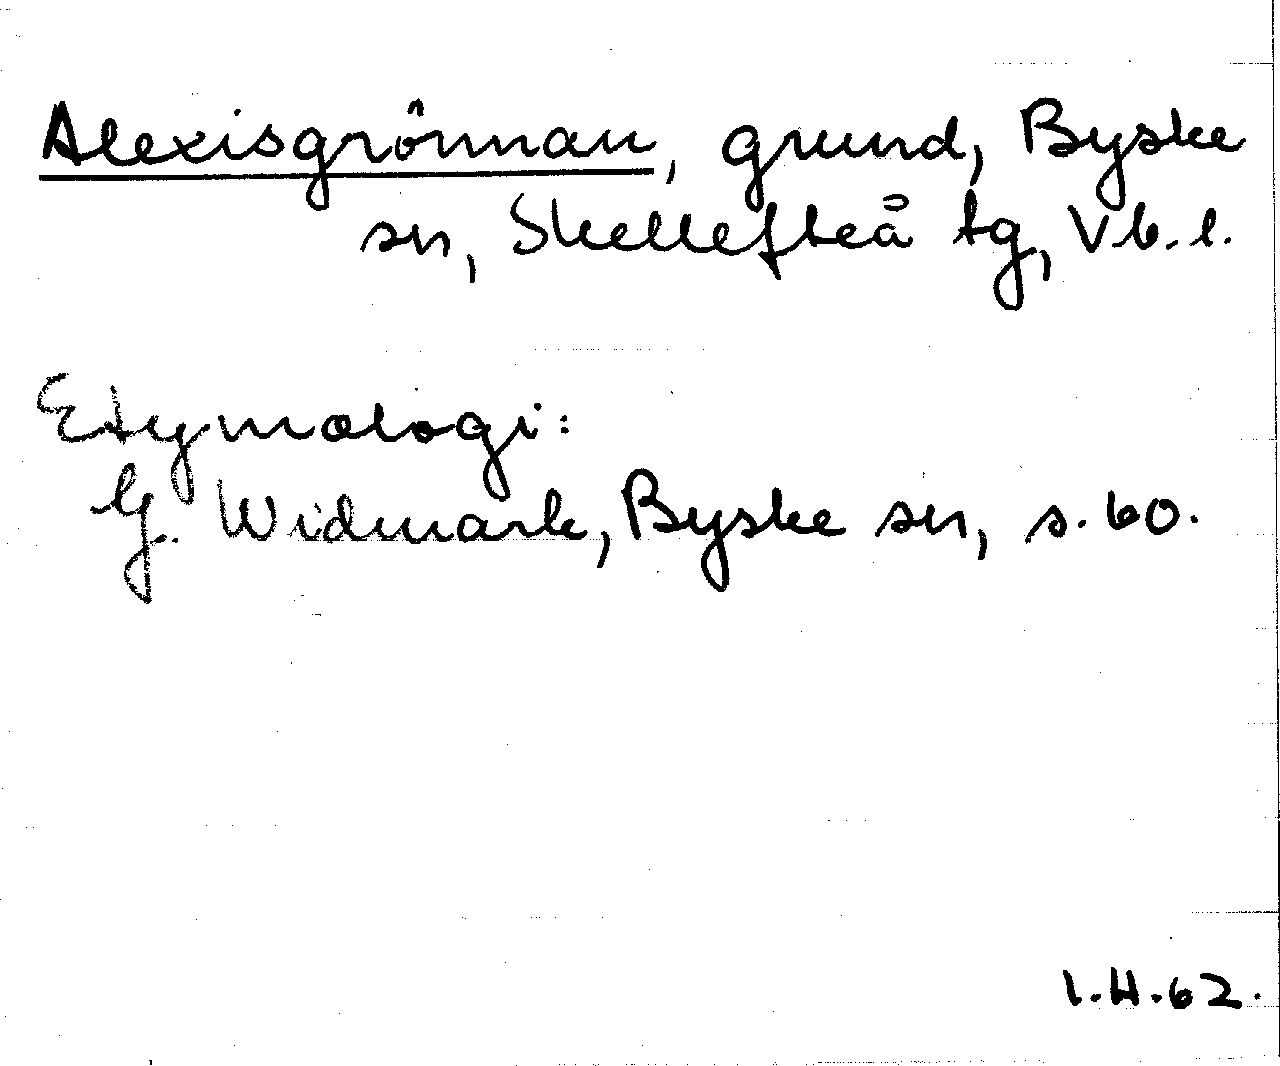 Alexisgrönnan, grund, Byske
sn, Skellefteå tg, Vb. l.
Etymologi:
G. Widmark, Byske sn, s. 60.
I.H.62.